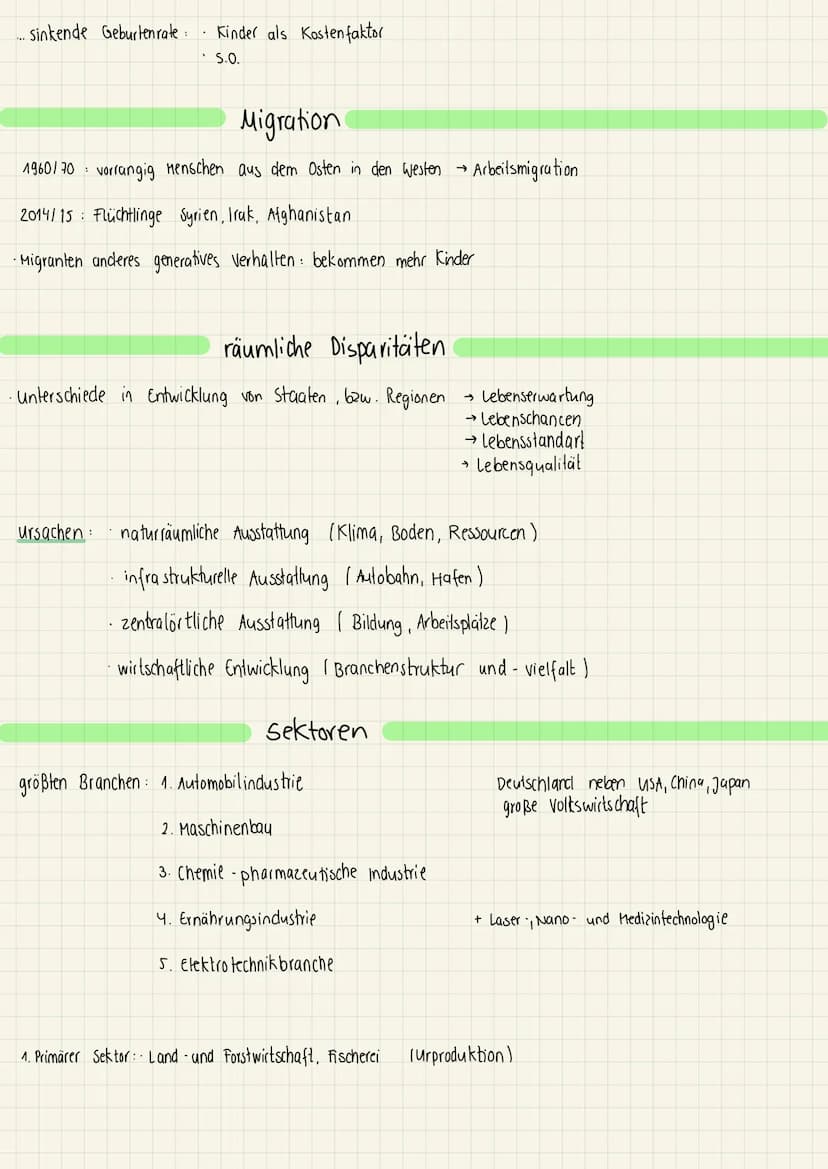 ... sinkende Geburtenrate: · Kinder als Kostenfaktor
· S.O.
Migration
1960/70 : vorrangig Menschen aus dem Osten in den Westen → Arbeitsmigration
2014/15 : Flüchtlinge Syrien, Irak, Afghanistan
· Migranten anderes generatives Verhalten: bekommen mehr Kinder
räumliche Disparitäten
· Unterschiede in Entwicklung von Staaten, bzw. Regionen → Lebenserwartung
→ Lebenschancen
→ Lebensstandart
→ Lebensqualität
Ursachen: · naturräumliche Ausstattung (Klima, Boden, Ressourcen)
· infrastrukturelle Ausstattung (Autobahn, Hafen)
· zentralörtliche Ausstattung (Bildung, Arbeitsplätze)
· wirtschaftliche Entwicklung (Branchenstruktur und -vielfalt)
Sektoren
größten Branchen: 1. Automobilindustrie
Deutschland neben USA, China, Japan
große Volkswirtschaft
2. Maschinenbau
3. Chemie-pharmazeutische Industrie
4. Ernährungsindustrie
+ Laser-, Nano- und Medizintechnologie
5. Elektrotechnikbranche
1. Primärer Sektor: · Land- und Forstwirtschaft, Fischerei (Urproduktion)